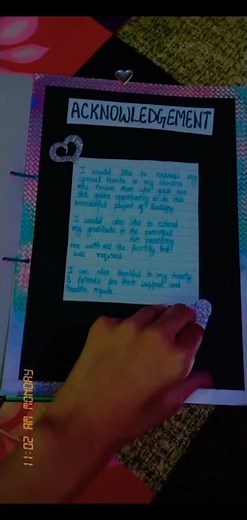 ACKNOWLEDGEMENT
I would like to express my
special thanks to my
who gave me
this opportunity to do this
wonderful project of Biology
I would also like to extend
my gratitude to the principal
for providing
me with all the facility that
was required
I am also thankful to my family
& friends for their support and
11:02 AM MONDAY